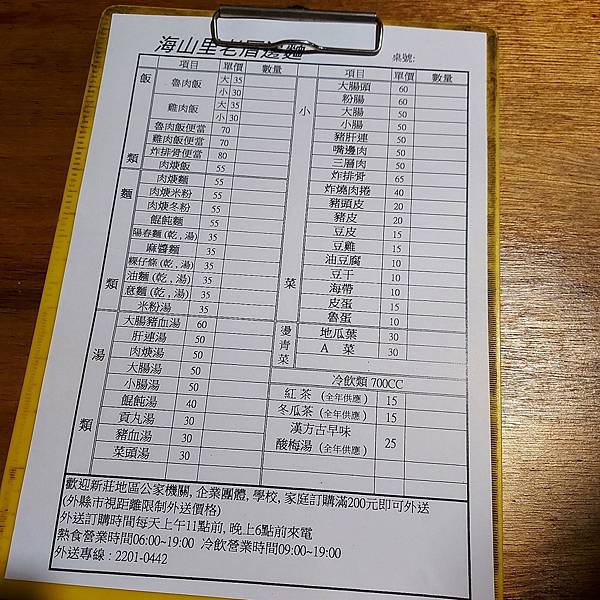 海山里老厝邊麵
桌號:
項目 單價 數量
飯類
魯肉飯 大 35
小 30
雞肉飯 大 35
小 30
魯肉飯便當 70
雞肉飯便當 70
炸排骨便當 80
肉焿飯 55
麵類
肉焿麵 55
肉焿米粉 55
肉焿冬粉 55
餛飩麵 55
陽春麵 (乾 , 湯) 35
麻醬麵 35
粿仔條 (乾 , 湯) 35
油麵 (乾 , 湯) 35
意麵 (乾 , 湯) 35
米粉湯 35
湯類
大腸豬血湯 60
肝連湯 50
肉焿湯 50
大腸湯 50
小腸湯 50
餛飩湯 40
貢丸湯 30
豬血湯 30
菜頭湯 30
項目 單價 數量
小菜
大腸頭 60
粉腸 60
大腸 50
小腸 50
豬肝連 50
嘴邊肉 50
三層肉 50
炸排骨 65
炸燒肉捲 40
豬頭皮 20
豬皮 20
豆皮 15
豆雞 15
油豆腐 10
豆干 10
海帶 10
皮蛋 15
魯蛋 10
燙青菜
地瓜葉 30
A 菜 30
冷飲類 700CC
紅茶 (全年供應) 15
冬瓜茶 (全年供應) 15
漢方古早味
酸梅湯 (全年供應) 25
歡迎新莊地區公家機關, 企業團體, 學校, 家庭訂購滿200元即可外送
(外縣市視距離限制外送價格)
外送訂購時間每天上午11點前, 晚上6點前來電
熱食營業時間06:00~19:00 冷飲營業時間09:00~19:00
外送專線 : 2201-0442